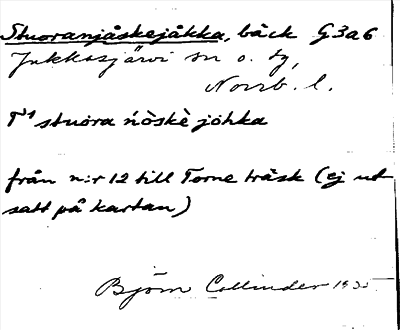 Stuoranjåskejåkka, bäck G3a6
Jukkasjärvi sn o. tg,
Norrb. l.
stuora ńòskè jòhka
från n:r 12 till Torne träsk (ej ut
satt på kartan)
Björn Collinder